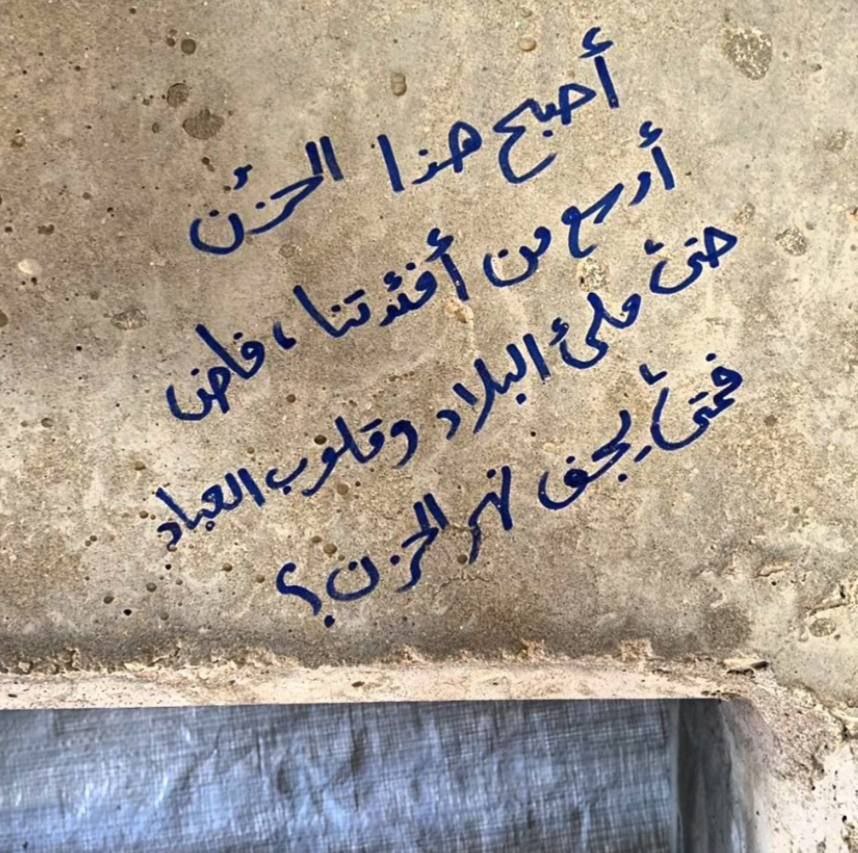 أصبح هذا الحزن
أوسع من أفئدتنا، فاض
حتى ملئ البلاد وقلوب العباد
فمتى يجف نهر الحزن؟